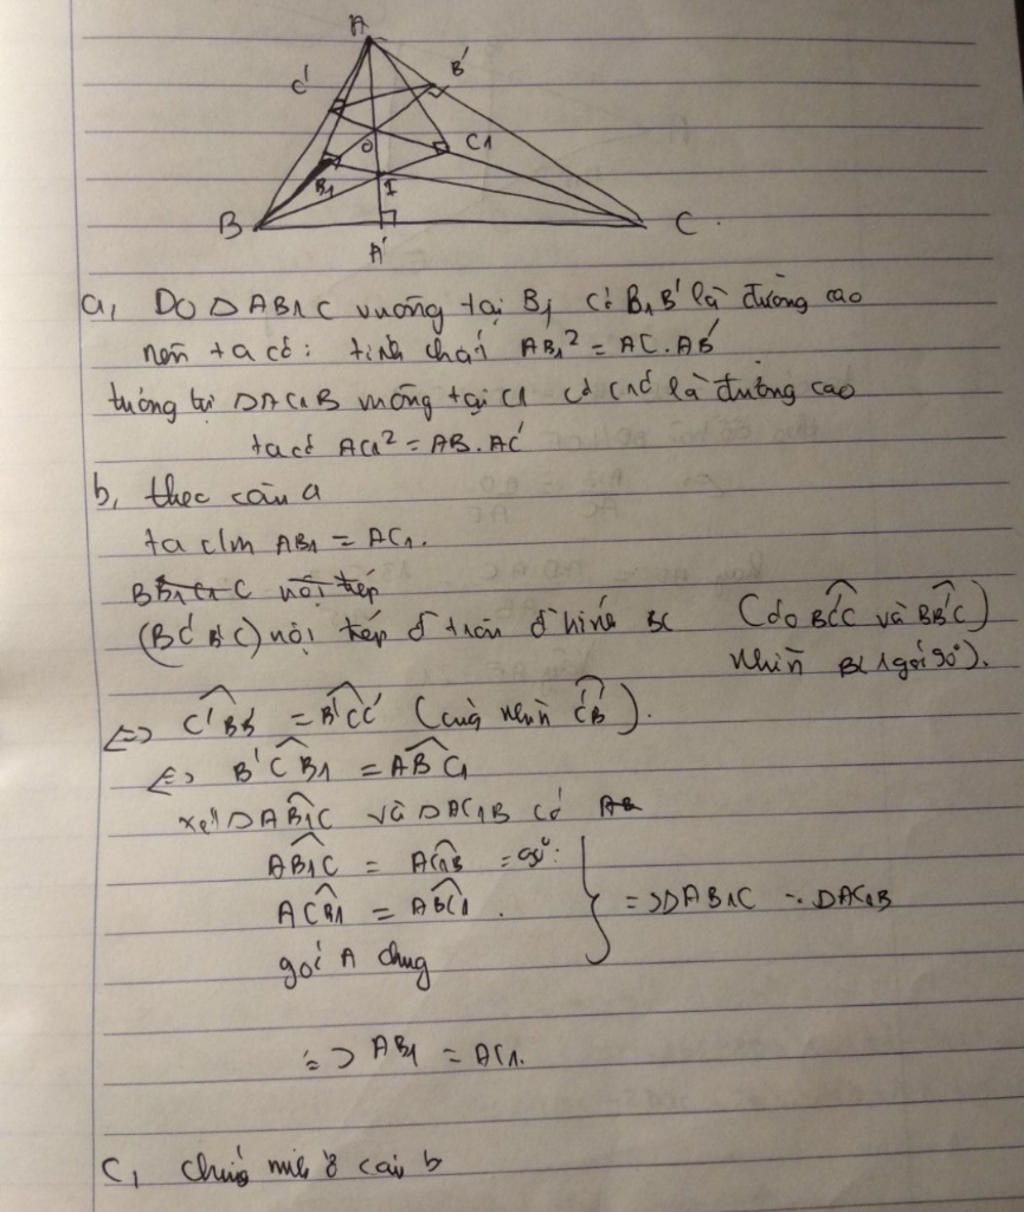 A
C'
B'
O
C1
B1
I
B
C
A'
a, Do Δ AB1C vuông tại B1 có B1B' là đường cao
nên ta có: tính chất AB1² = AC.AB'
tương tự ΔAC1B vuông tại C1 có C1C' là đường cao
ta có AC1² = AB.AC'
b, theo câu a
ta c/m AB1 = AC1.
BB1C1C nội tiếp
(BC'B'C) nội tiếp đ tròn đ kính BC (do BC'C và BB'C)
nhìn BC 1 góc 90°).
<=> C'BB' = B'CC' (cùng nhìn C'B').
<=> B'CB1 = ABC1
xét ΔAB1C và ΔAC1B có AB
AB1C = AC1B = 90°:
ACB1 = ABC1. => ΔAB1C ~ ΔAC1B
góc A chung
=> AB1 = AC1.
C, chứng minh ở câu b